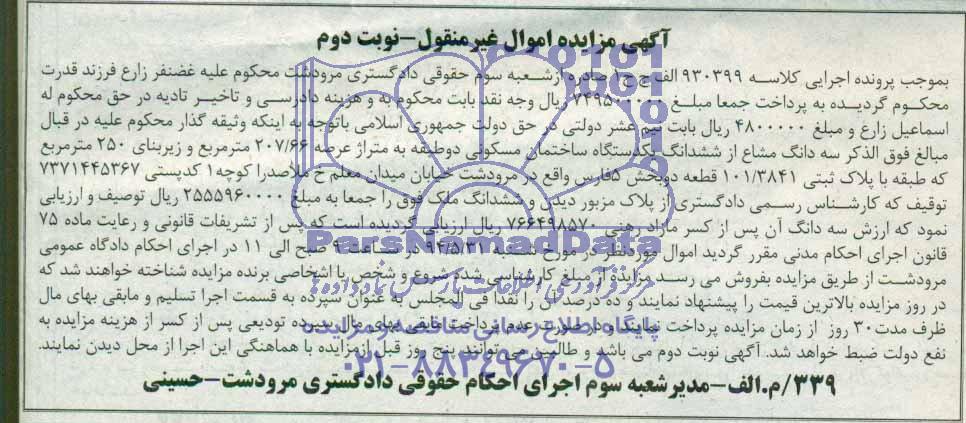 آگهی مزایده اموال غیرمنقول-نوبت دوم
بموجب پرونده اجرایی کلاسه ۹۳۰۳۹۹ الف ج ح۱ صادره ازشعبه سوم حقوقی دادگستری مرودشت محکوم علیه غضنفر زارع فرزند قدرت
محکوم گردیده به پرداخت جمعا مبلغ ریال وجه نقد بابت محکوم به و هزینه دادرسی و تاخیر تادیه در حق محکوم له
اسماعیل زارع و مبلغ ۴۸۰۰۰۰۰ ریال بابت نیم عشر دولتی در حق دولت جمهوری اسلامی باتوجه به اینکه وثیقه گذار محکوم علیه در قبال
مبالغ فوق الذکر سه دانگ مشاع از ششدانگ یکدستگاه ساختمان مسکونی دوطبقه به متراژ عرصه ۲۰۷/۶۶ مترمربع و زیربنای ۲۵۰ مترمربع
که طبقه با پلاک ثبتی ۱۰۱/۳۸۴۱ قطعه دوبخش ۵فارس واقع در مرودشت خیابان میدان معلم خ ملاصدرا کوچه۱ کدپستی ۷۳۷۱۴۴۵۳۶۷
توقیف که کارشناس رسمی دادگستری از پلاک مزبور دیدن و ششدانگ ملک فوق را جمعا به مبلغ ۲۵۵۵۹۶۰۰۰۰ ریال توصیف و ارزیابی
نمود که ارزش سه دانگ آن پس از کسر مازاد رهنی ریال ارزیابی گردیده است که پس از تشریفات قانونی و رعایت ماده ۷۵
قانون اجرای احکام مدنی مقرر گردید اموال موردنظر در مورخ شنبه ۹۴/۵/۳۱ در ساعت ۹ صبح الی ۱۱ در اجرای احکام دادگاه عمومی
مرودشت از طریق مزایده بفروش می رسد مزایده از مبلغ کارشناسی شده شروع و شخص یا اشخاصی برنده مزایده شناخته خواهند شد که
در روز مزایده بالاترین قیمت را پیشنهاد نمایند و ده درصد آن را نقدا فی المجلس به عنوان سپرده به قسمت اجرا تسلیم و مابقی بهای مال
ظرف مدت ۳۰ روز از زمان مزایده پرداخت نمایند و در صورت عدم پرداخت مابقی بهای مال سپرده تودیعی پس از کسر از هزینه مزایده به
نفع دولت ضبط خواهد شد. آگهی نوبت دوم می باشد و طالبین می توانند پنج روز قبل ازمزایده با هماهنگی این اجرا از محل دیدن نمایند.
۳۳۹/م.الف-مدیرشعبه سوم اجرای احکام حقوقی دادگستری مرودشت-حسینی
ParsNamadData
مرکز فرآوری اطلاعات پارس نماد داده ها
پایگاه اطلاع رسانی مناقصه و مزایده
۰۲۱-۸۸۳۴۹۶۷۰-۵